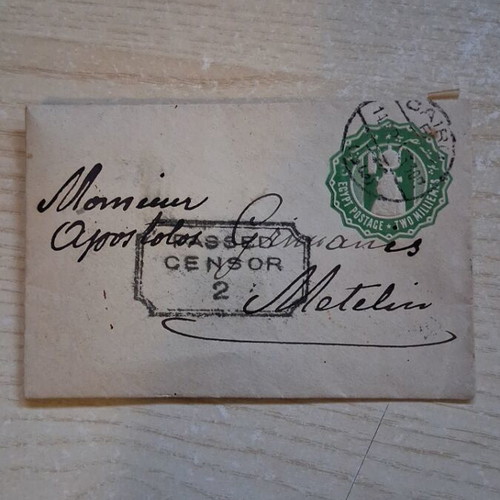 CAIR
EGYPT POSTAGE • TWO MILLIEMES
Monsieur
Apostolos
PASSED
CENSOR
2
Metelin